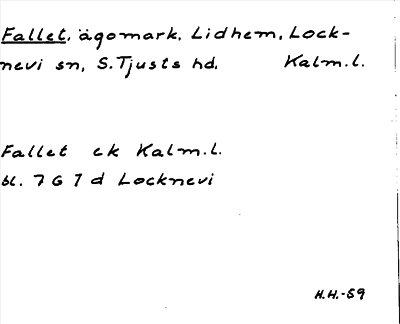 Fallet, ägomark, Lidhem, Lock-
nevi sn, S. Tjusts hd, Kalm. l.
Fallet ek Kalm. l.
bl. 7 G 7 d Locknevi
H.H.-59